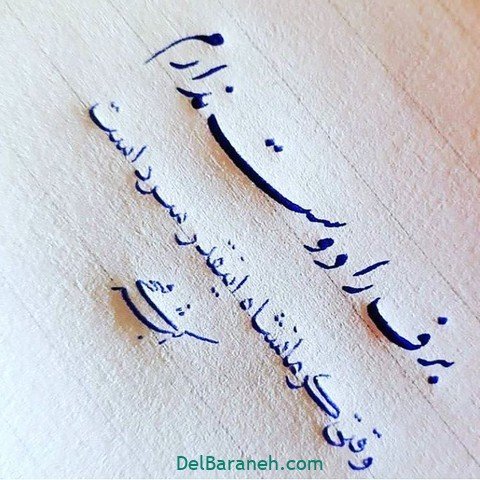 برف را دوست ندارم
وقتی کرمانشاه اینقدر سرد است
DelBaraneh.com